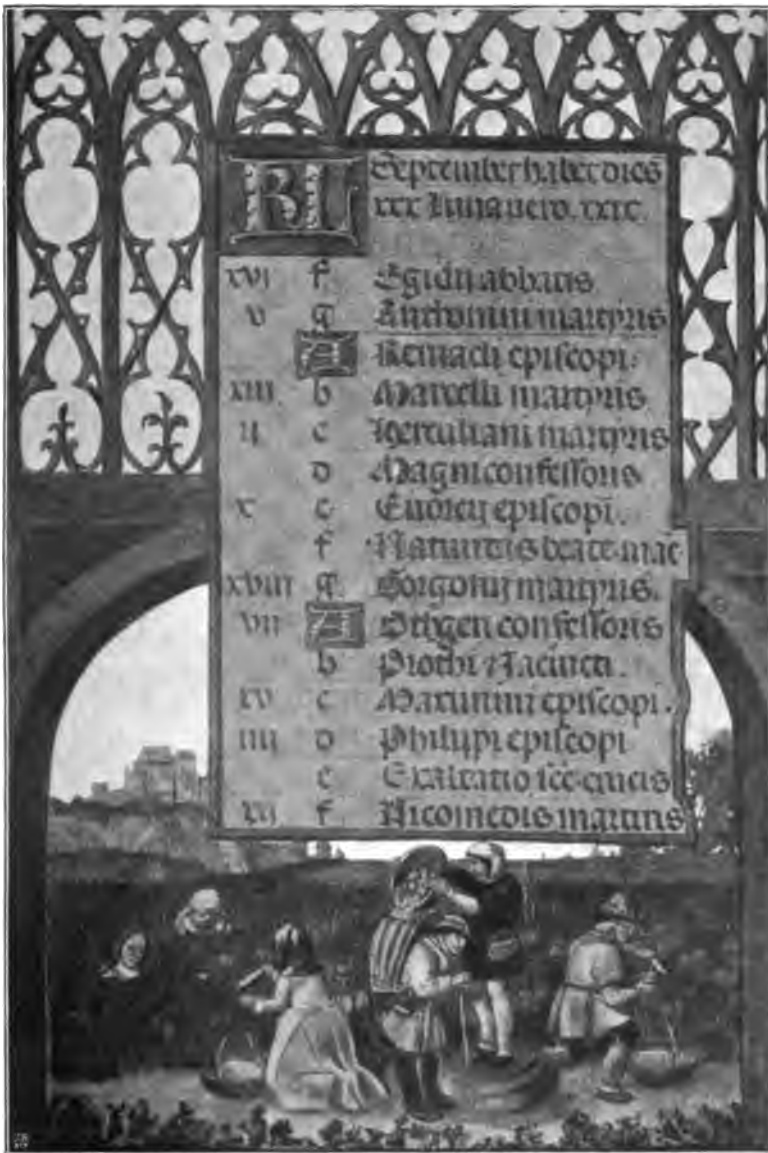 KL September habet dies
xxx Luna vero. xxix.
xvi f Egidii abbatis
v g Anthonini martyris
A Remacli episcopi.
xiii b Marcelli martyris
ii c Herculiani martyris
d Magni confessoris
x e Evorcij episcopi.
f Nativitatis beate mar
xviii g Gorgonij martyris.
vii A confessoris
b Prothi Jacincti.
xv c Maximini episcopi.
iiii d Philippi episcopi
e Exaltatio scē crucis
xii f Nicomedis martiris